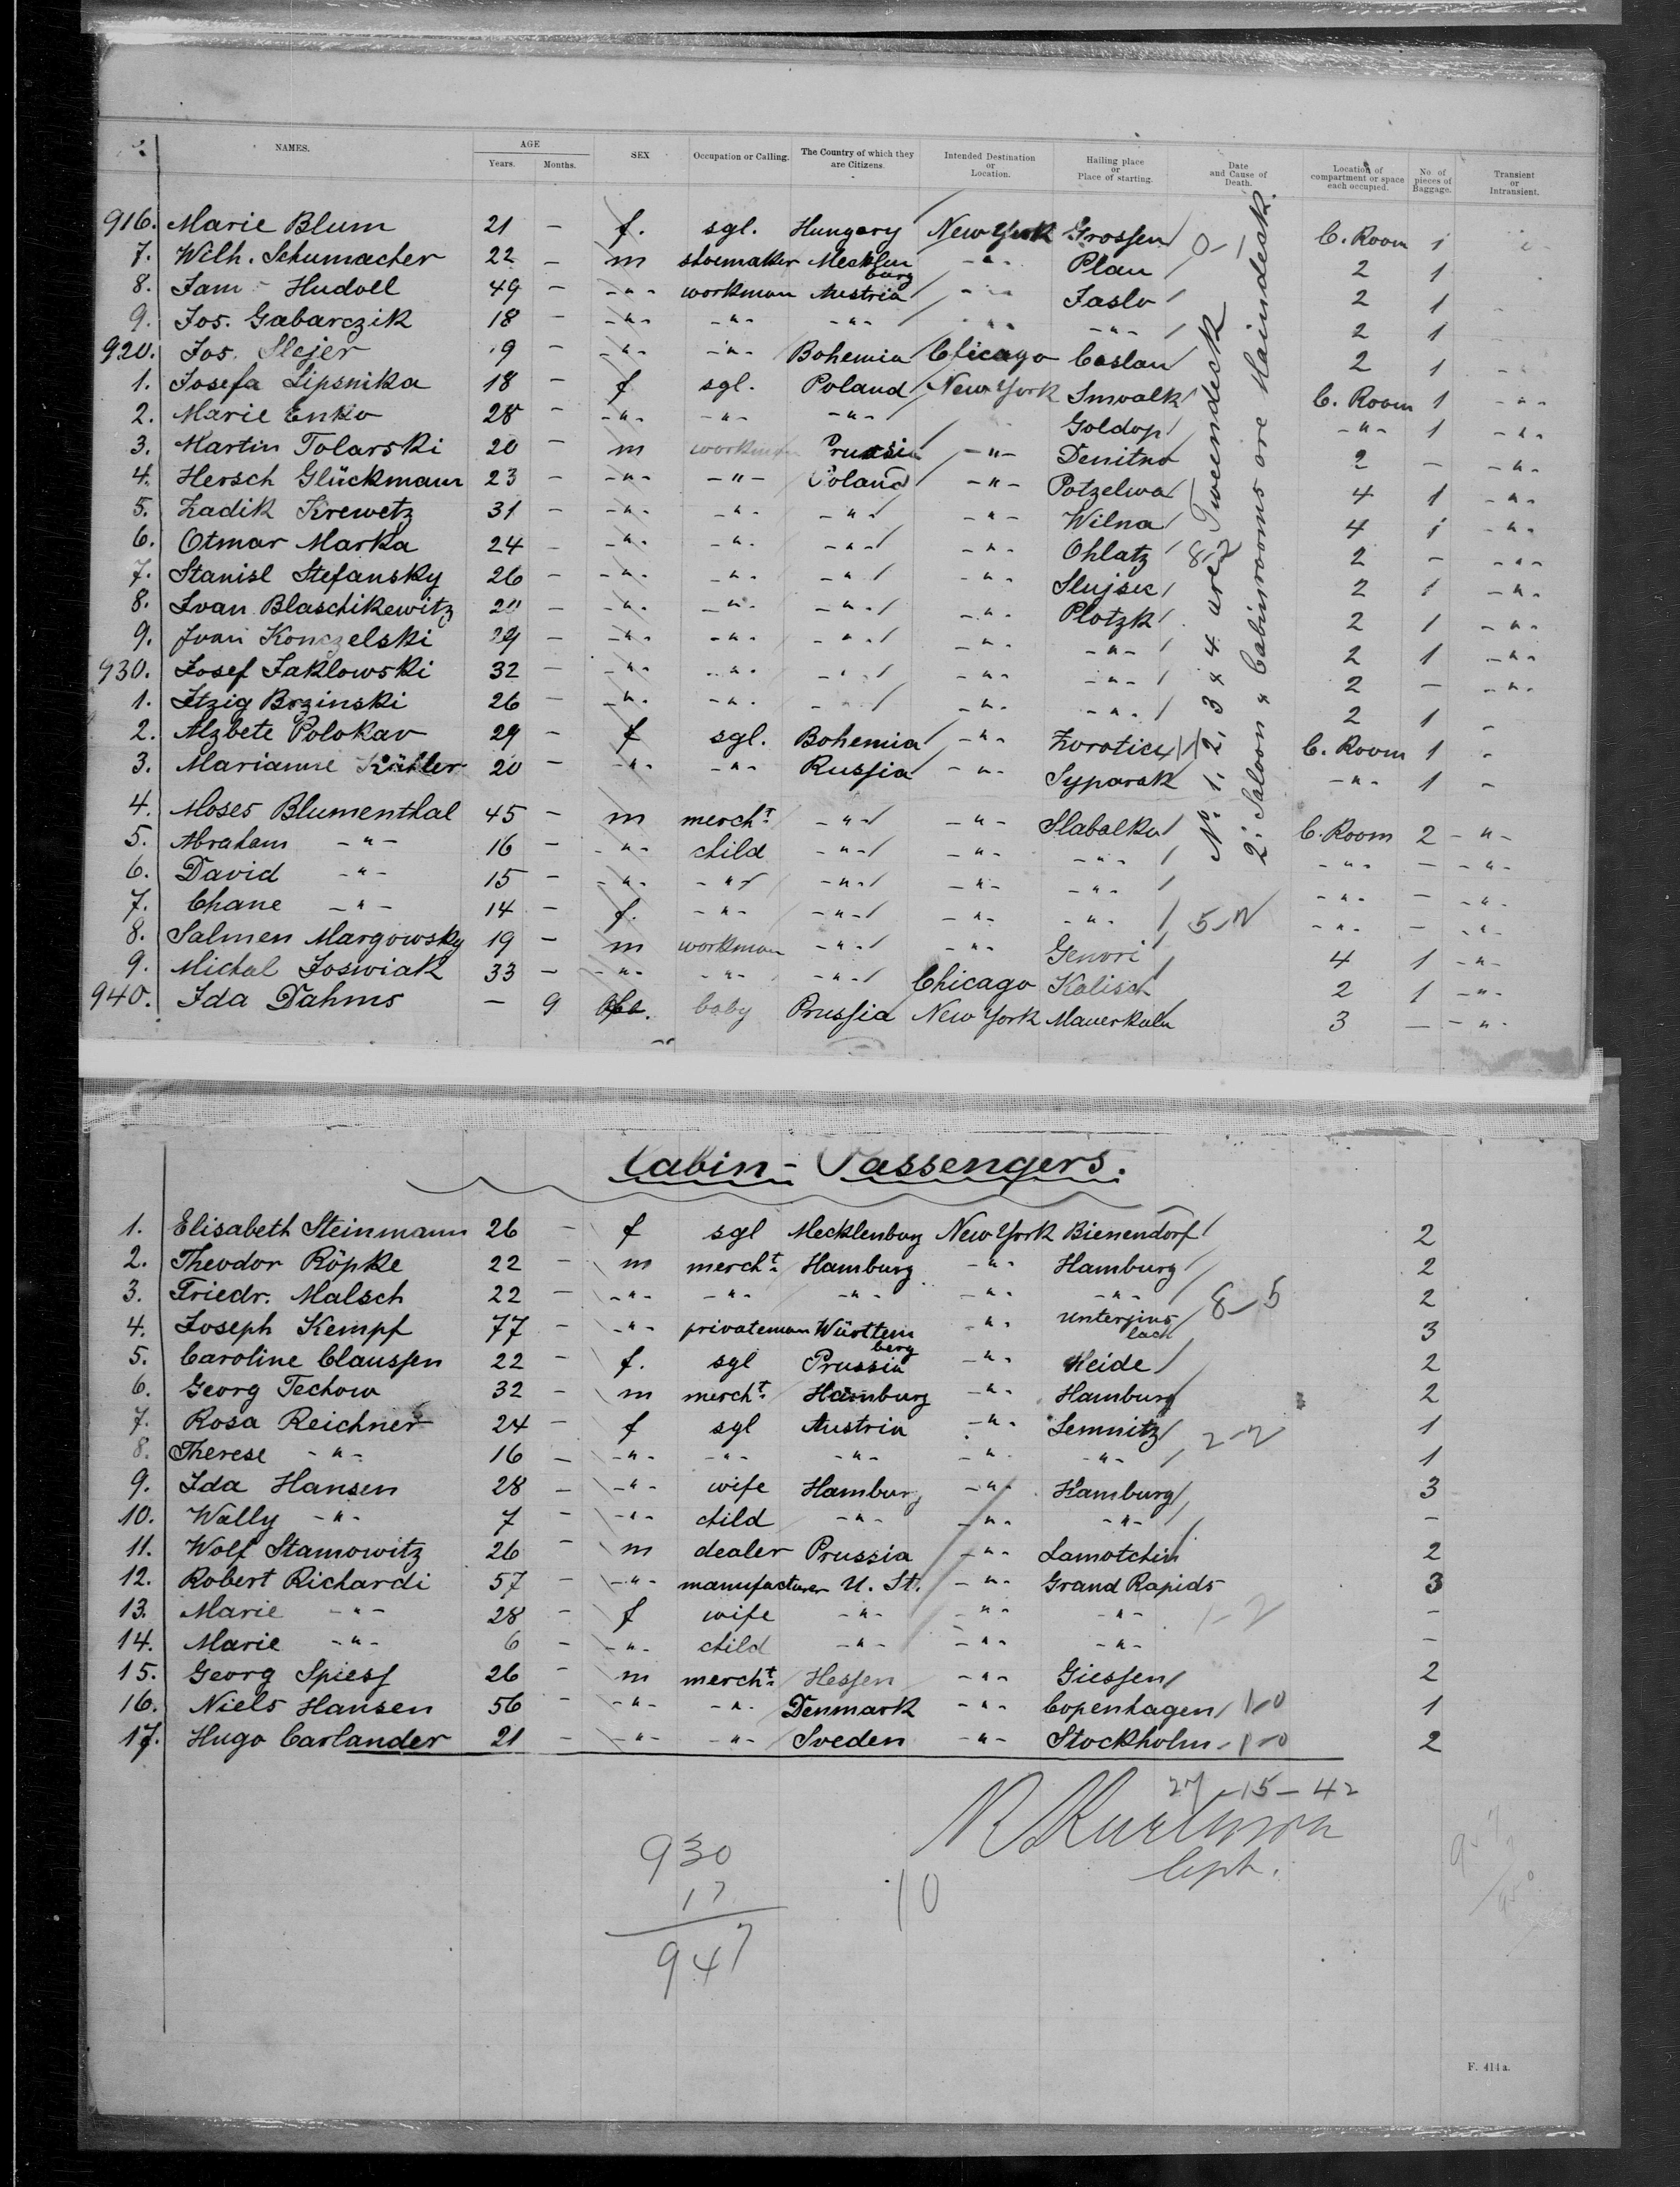 NAMES. AGE Years. Months. SEX Occupation or Calling. The Country of which they are Citizens. Intended Destination or Location. Hailing place or Place of starting. Date and Cause of Death. Location of compartment or space each occupied. No. of pieces of Baggage. Transient or Intransient.
916. Marie Blum 21 - f. sgl. Hungary New York Grossen C. Room 1
7. Wilh. Schumacher 22 - m shoemaker Mecklenburg -"- Plau 2 1
8. Jam Hudoll 49 - -"- workman Austria -"- Jaslo 2 1
9. Jos. Gabarczik 18 - -"- -"- -"- -"- -"- 2 1
920. Jos. Slejer 19 - -"- -"- Bohemia Chicago Caslau 2 1
1. Josefa Lipsnika 18 - f sgl. Poland New York Suwalk C. Room 1 -"-
2. Marie Enko 28 - -"- -"- -"- Goldop -"- 1 -"-
3. Martin Tolarski 20 - m workman Prussia -"- Denitno 2 - -"-
4. Hersch Glückmann 23 - -"- -"- Poland -"- Potzelwa 4 1 -"-
5. Zadik Krewetz 31 - -"- -"- -"- -"- Wilna 4 1 -"-
6. Otmar Marka 24 - -"- -"- -"- -"- Ohlatz 2 - -"-
7. Stanisl Stefansky 26 - -"- -"- -"- -"- Slujsec 2 1 -"-
8. Ivan Blaschikewitz 20 - -"- -"- -"- -"- Plotzk 2 1 -"-
9. Ivan Konczelski 29 - -"- -"- -"- -"- -"- 2 1 -"-
930. Josef Jaklowski 32 - -"- -"- -"- -"- -"- 2 - -"-
1. Itzig Brzinski 26 - -"- -"- -"- -"- -"- 2 1 -
2. Alzbete Polokav 29 - f sgl. Bohemia -"- Zwoticx C. Room 1 -
3. Marianne 20 - -"- -"- Russia -"- Syparsk -"- 1 -
4. Moses Blumenthal 45 - m mercht. -"- -"- Slabolka C. Room 2 -"-
5. Abraham -"- 16 - -"- child -"- -"- -"- -"- - -"-
6. David -"- 15 - -"- -"- -"- -"- -"- -"- - -"-
7. Chane -"- 14 - f. -"- -"- -"- -"- -"- - -"-
8. Salmen Margowsky 19 - m workman -"- -"- Genori 4 1 -"-
9. Michal Joswiak 33 - -"- -"- -"- Chicago Kalisch 2 1 -"-
940. Ida Dahms - 9 baby Prussia New York Mauerkuln 3 - -"-
No 1, 2, 3 & 4 are Tweendeck
2. Saloon & Cabinrooms are Maindeck.
Cabin-Passengers.
1. Elisabeth Steinmann 26 - f sgl Mecklenburg New York Bienendorf 2
2. Theodor Röpke 22 - m mercht. Hamburg -"- Hamburg 2
3. Friedr. Malsch 22 - -"- -"- -"- -"- -"- 8-5 2
4. Joseph Kempf 77 - -"- privateman Württemberg -"- Unterjins lach 3
5. Caroline Claussen 22 - f. sgl Prussia -"- Heide 2
6. Georg Techow 32 - m mercht. Hamburg -"- Hamburg 2
7. Rosa Reichner 24 - f sgl Austria -"- Lemnitz 2-2 1
8. Therese -"- 16 - -"- -"- -"- -"- -"- 1
9. Ida Hansen 28 - -"- wife Hamburg -"- Hamburg 3
10. Wally -"- 7 - -"- child -"- -"- -"- -
11. Wolf Stamowitz 26 - m dealer Prussia -"- Lamotchin 2
12. Robert Richardi 57 - -"- manufacturer U. St. -"- Grand Rapids 3
13. Marie -"- 28 - f wife -"- -"- -"- 1-2 -
14. Marie -"- 6 - -"- child -"- -"- -"- -
15. Georg Spiess 26 - m mercht. Hessen -"- Giessen 2
16. Niels Hansen 56 - -"- -"- Denmark -"- Copenhagen 1-0 1
17. Hugo Carlander 21 - -"- -"- Sveden -"- Stockholm 1-0 2
27-15-42
930
17
947
10
Cpt.
F. 414 a.